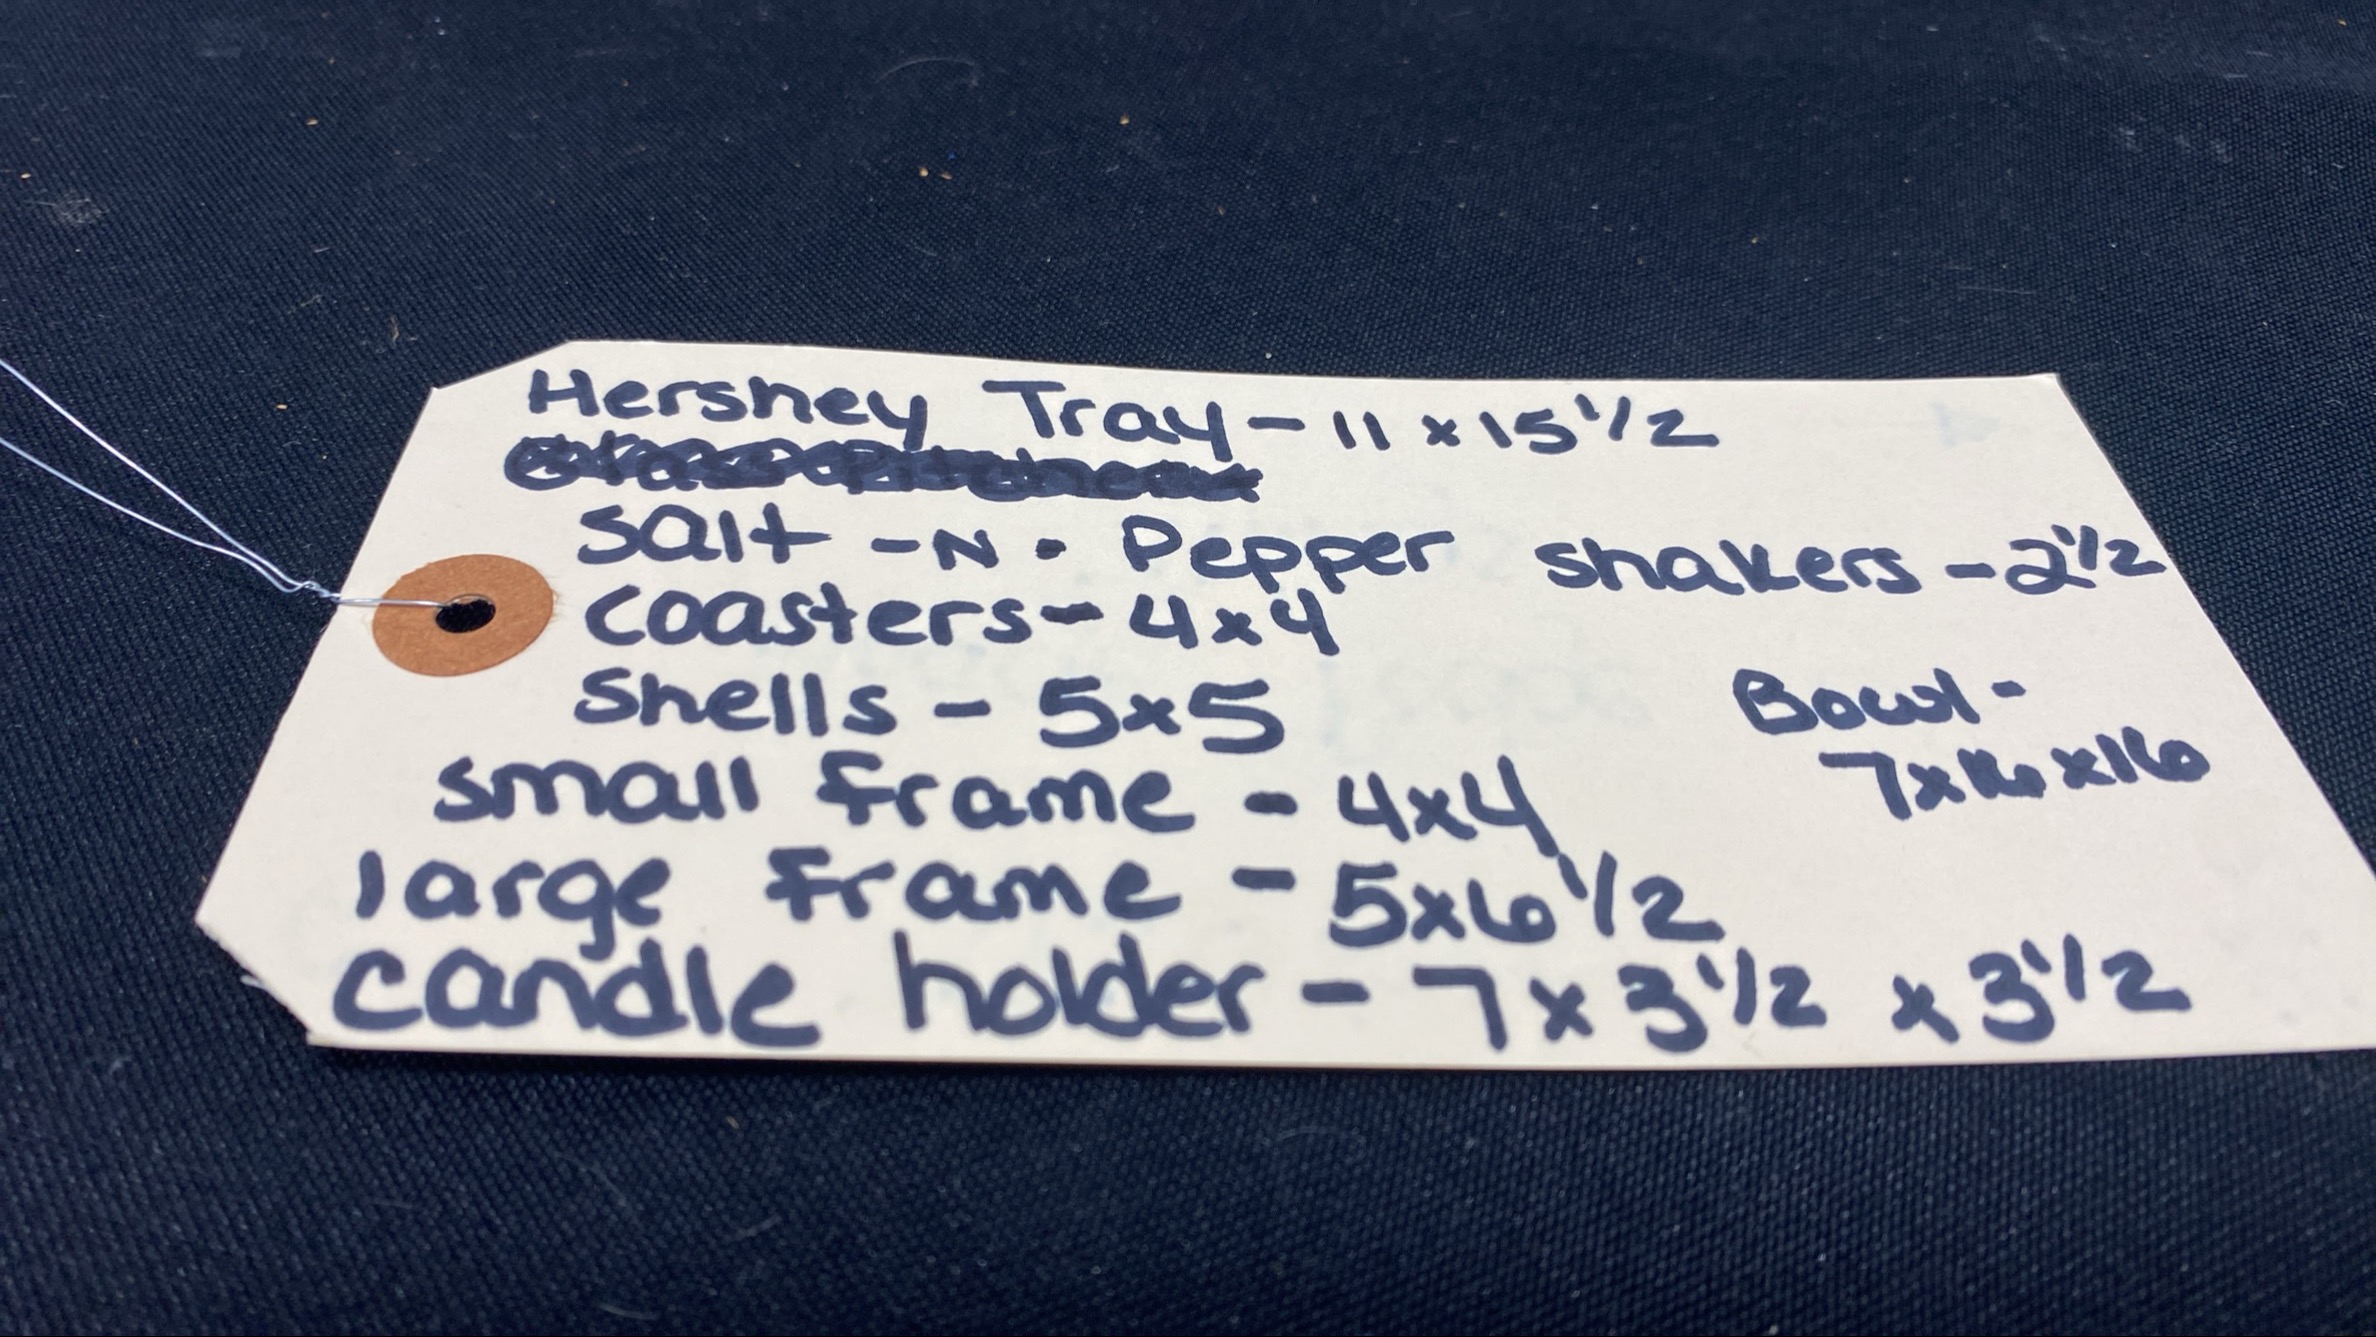 Hershey Tray - 11 x 15 1/2
Salt - N - Pepper shakers - 2 1/2
coasters - 4x4
Shells - 5x5
Bowl -
7x16x16
small frame - 4x4
large frame - 5x6 1/2
candle holder - 7 x 3 1/2 x 3 1/2